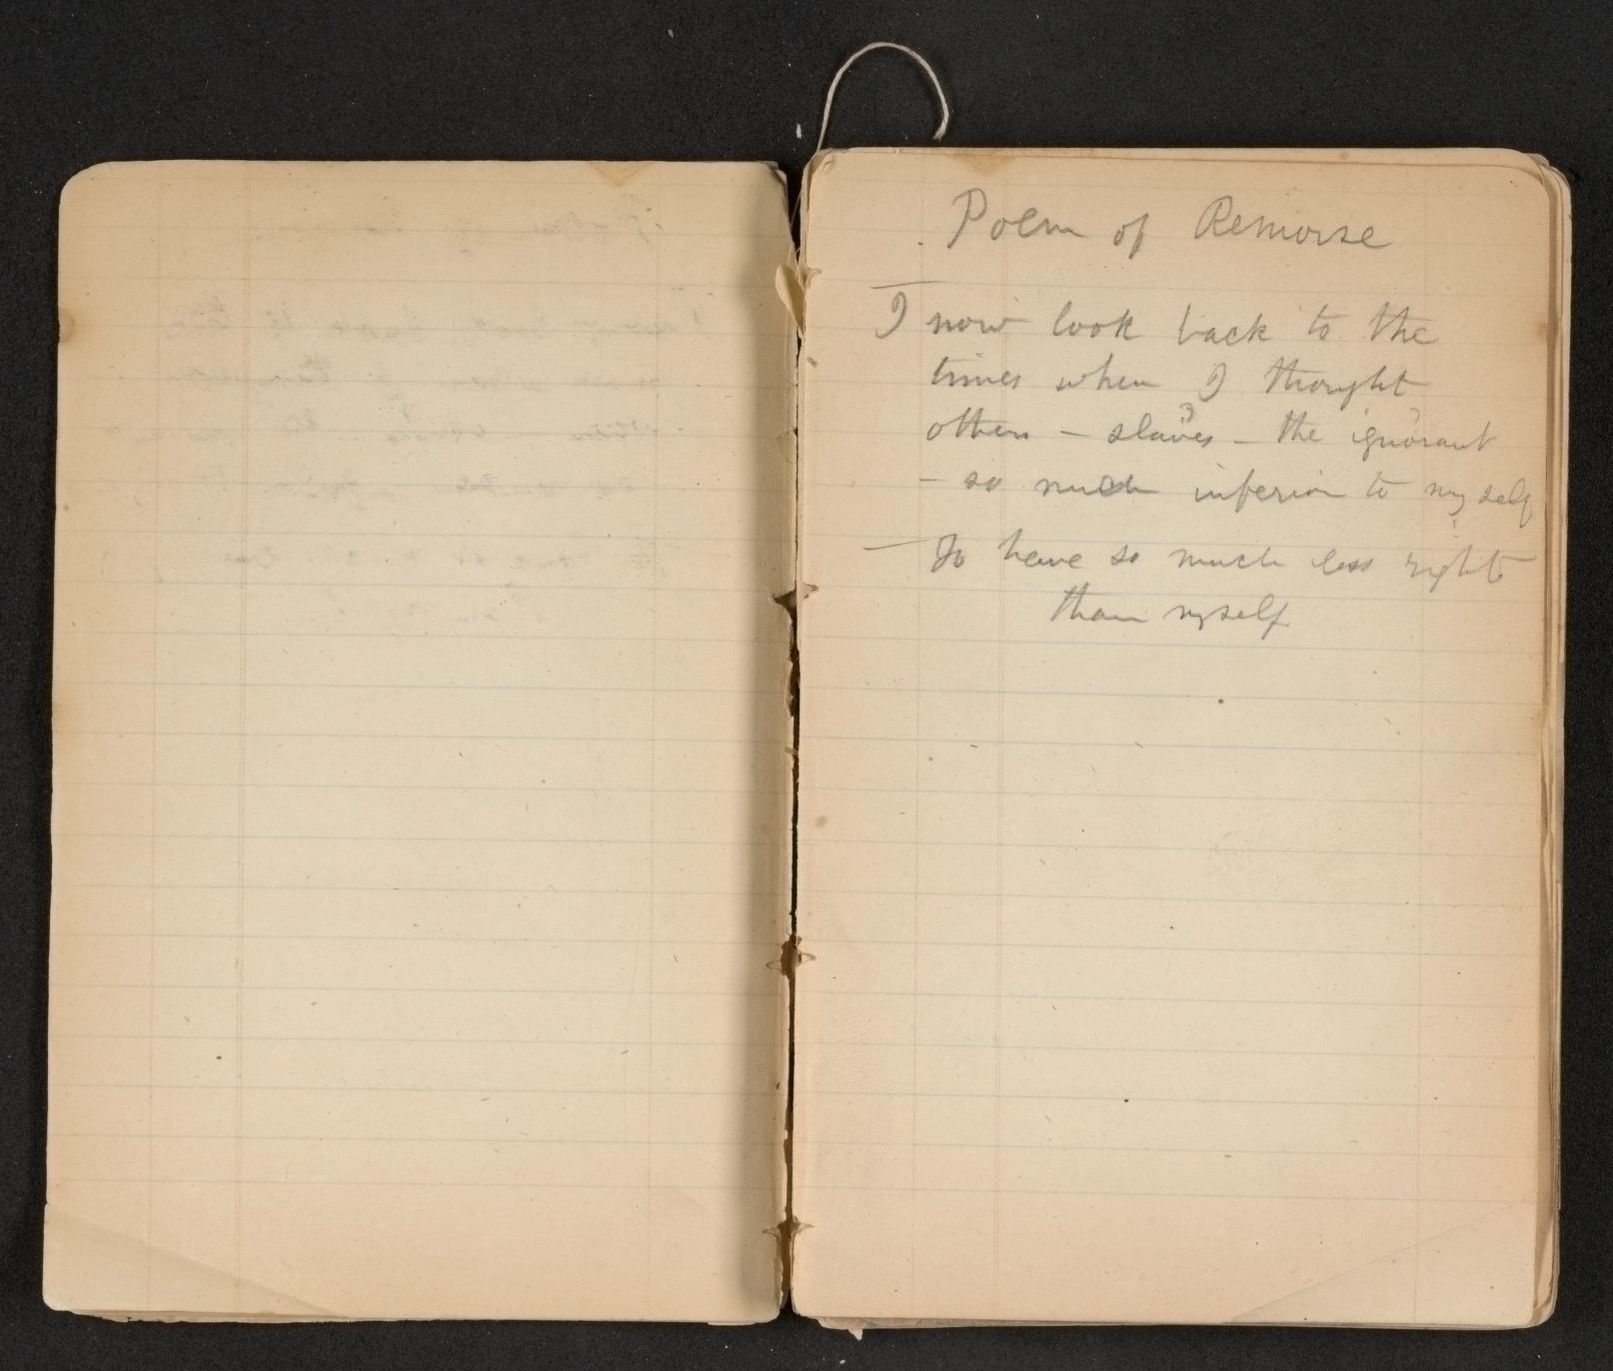 Poem of Remorse
I now look back to the
times when I thought
others – slaves – the ignorant
– so much inferior to myself
– To have so much less right
than myself